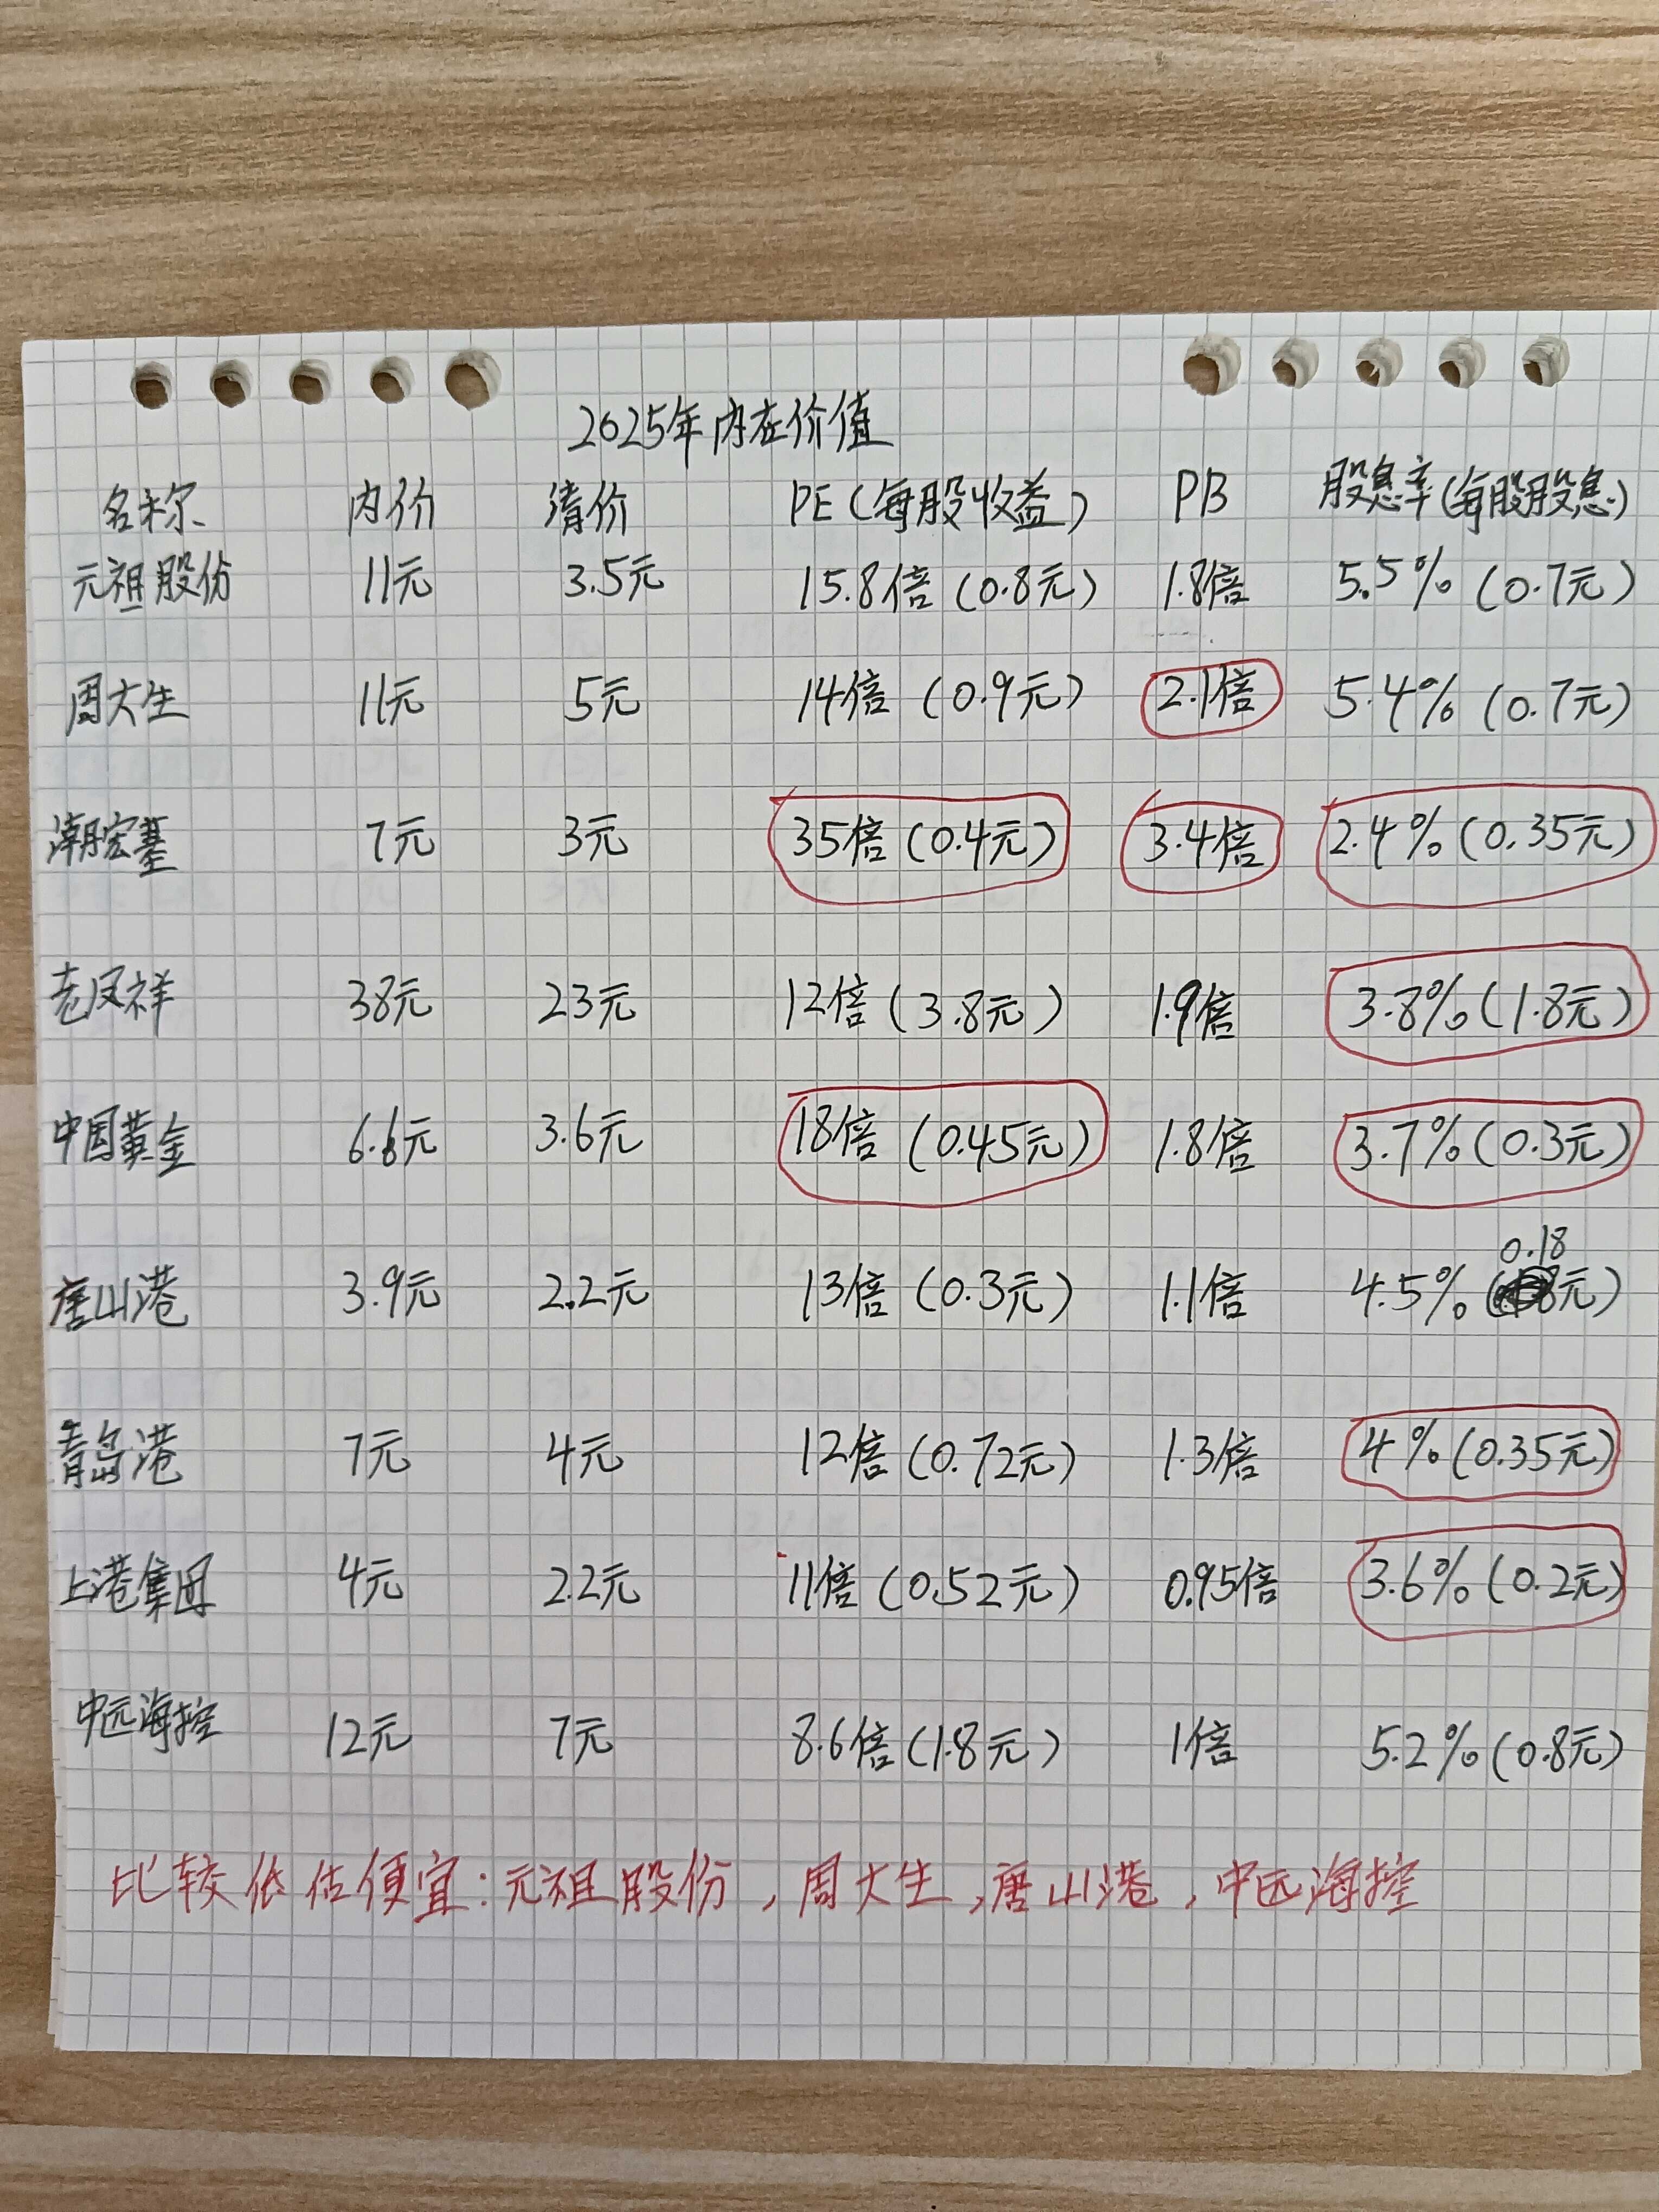 2025年内在价值
名称 内价 清价 PE(每股收益) PB 股息率(每股股息)
元祖股份 11元 3.5元 15.8倍(0.8元) 1.8倍 5.5%(0.7元)
周大生 11元 5元 14倍(0.9元) 2.1倍 5.4%(0.7元)
潮宏基 7元 3元 35倍(0.4元) 3.4倍 2.4%(0.35元)
老凤祥 38元 23元 12倍(3.8元) 1.9倍 3.8%(1.8元)
中国黄金 6.6元 3.6元 18倍(0.45元) 1.8倍 3.7%(0.3元)
唐山港 3.9元 2.2元 13倍(0.3元) 1.1倍 4.5%(0.18元)
青岛港 7元 4元 12倍(0.72元) 1.3倍 4%(0.35元)
上港集团 4元 2.2元 11倍(0.52元) 0.95倍 3.6%(0.2元)
中远海控 12元 7元 8.6倍(1.8元) 1倍 5.2%(0.8元)
比较低估便宜:元祖股份,周大生,唐山港,中远海控